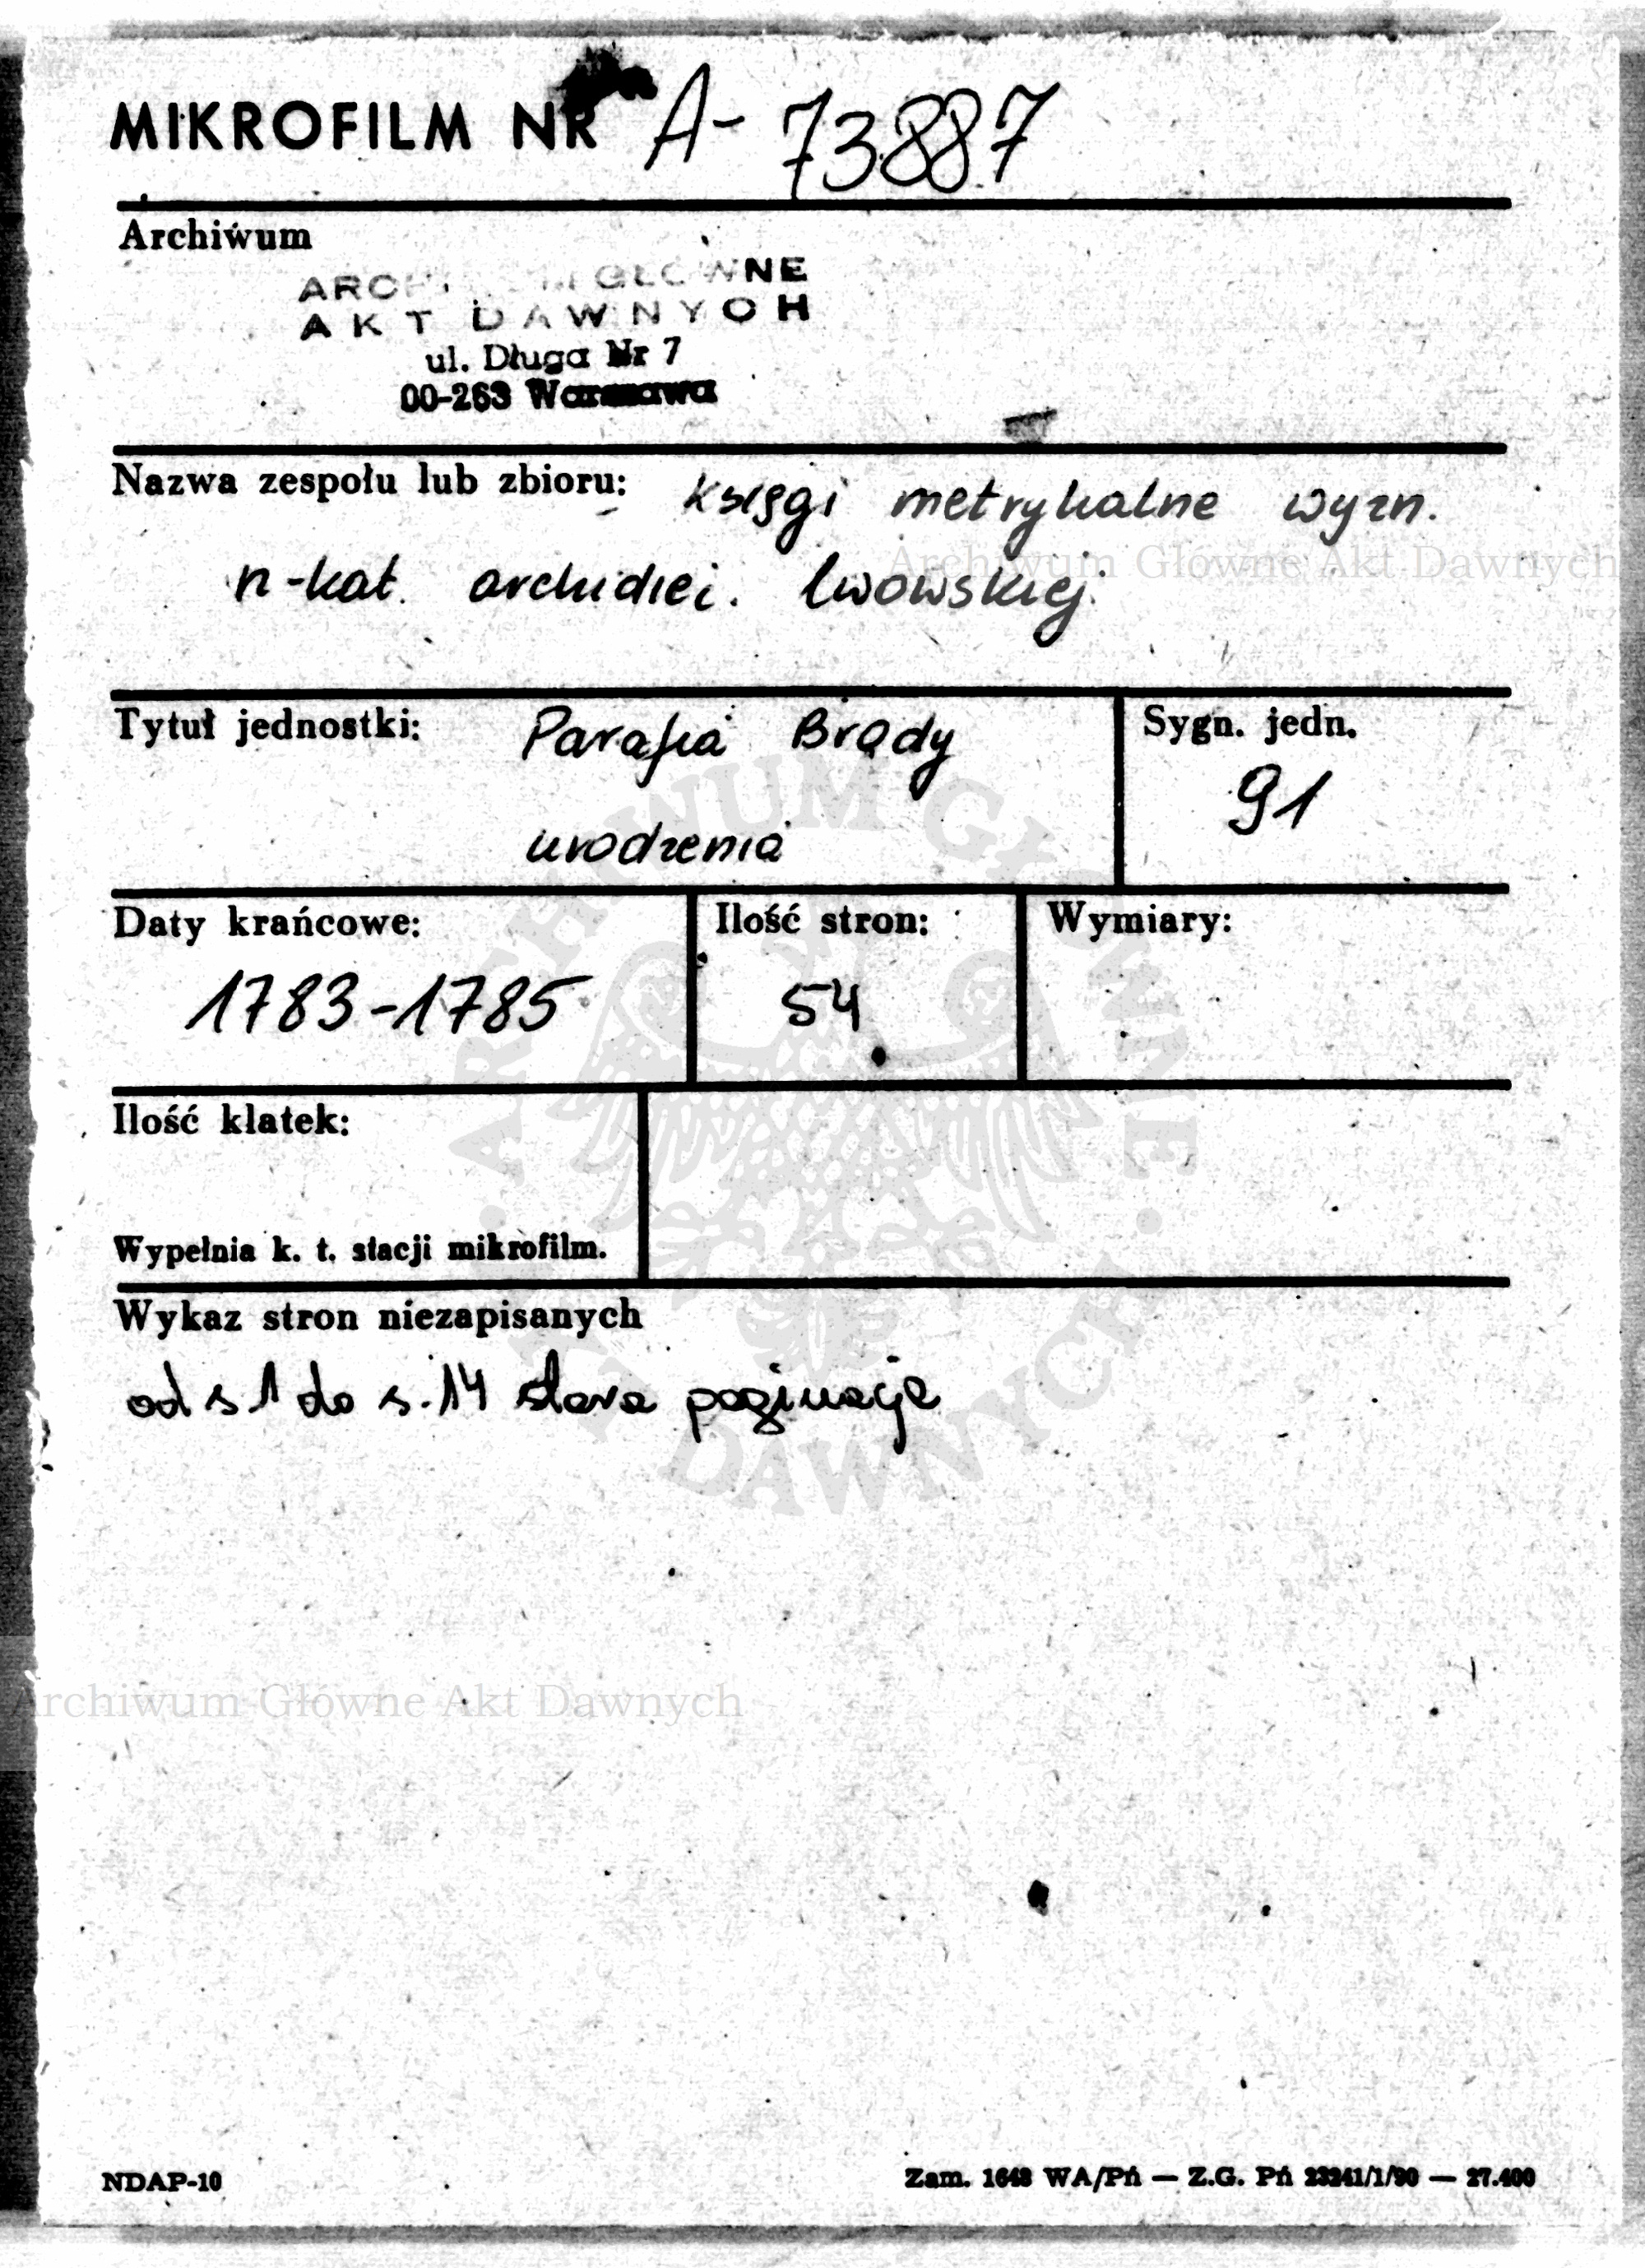 MIKROFILM NR A-73887
Archiwum
ARCHIWUM GŁÓWNE
AKT DAWNYCH
ul. Długa Nr 7
00-263 Warszawa
Nazwa zespołu lub zbioru: księgi metrykalne wyzn.
Archiwum Główne Akt Dawnych
r-kat. archidiec. lwowskiej
Tytuł jednostki: Parafia Brody
Sygn. jedn.
91
urodzenia
Daty krańcowe:
Ilość stron:
Wymiary:
1783-1785
54
Ilość klatek:
Wypełnia k. t. stacji mikrofilm.
Wykaz stron niezapisanych
od s 1 do s. 14 stara paginacja
ARCHIWUM GŁÓWNE AKT DAWNYCH
Archiwum Główne Akt Dawnych
NDAP-10
Zam. 1648 WA/Pń — Z.G. Pń 23241/1/90 — 27.400